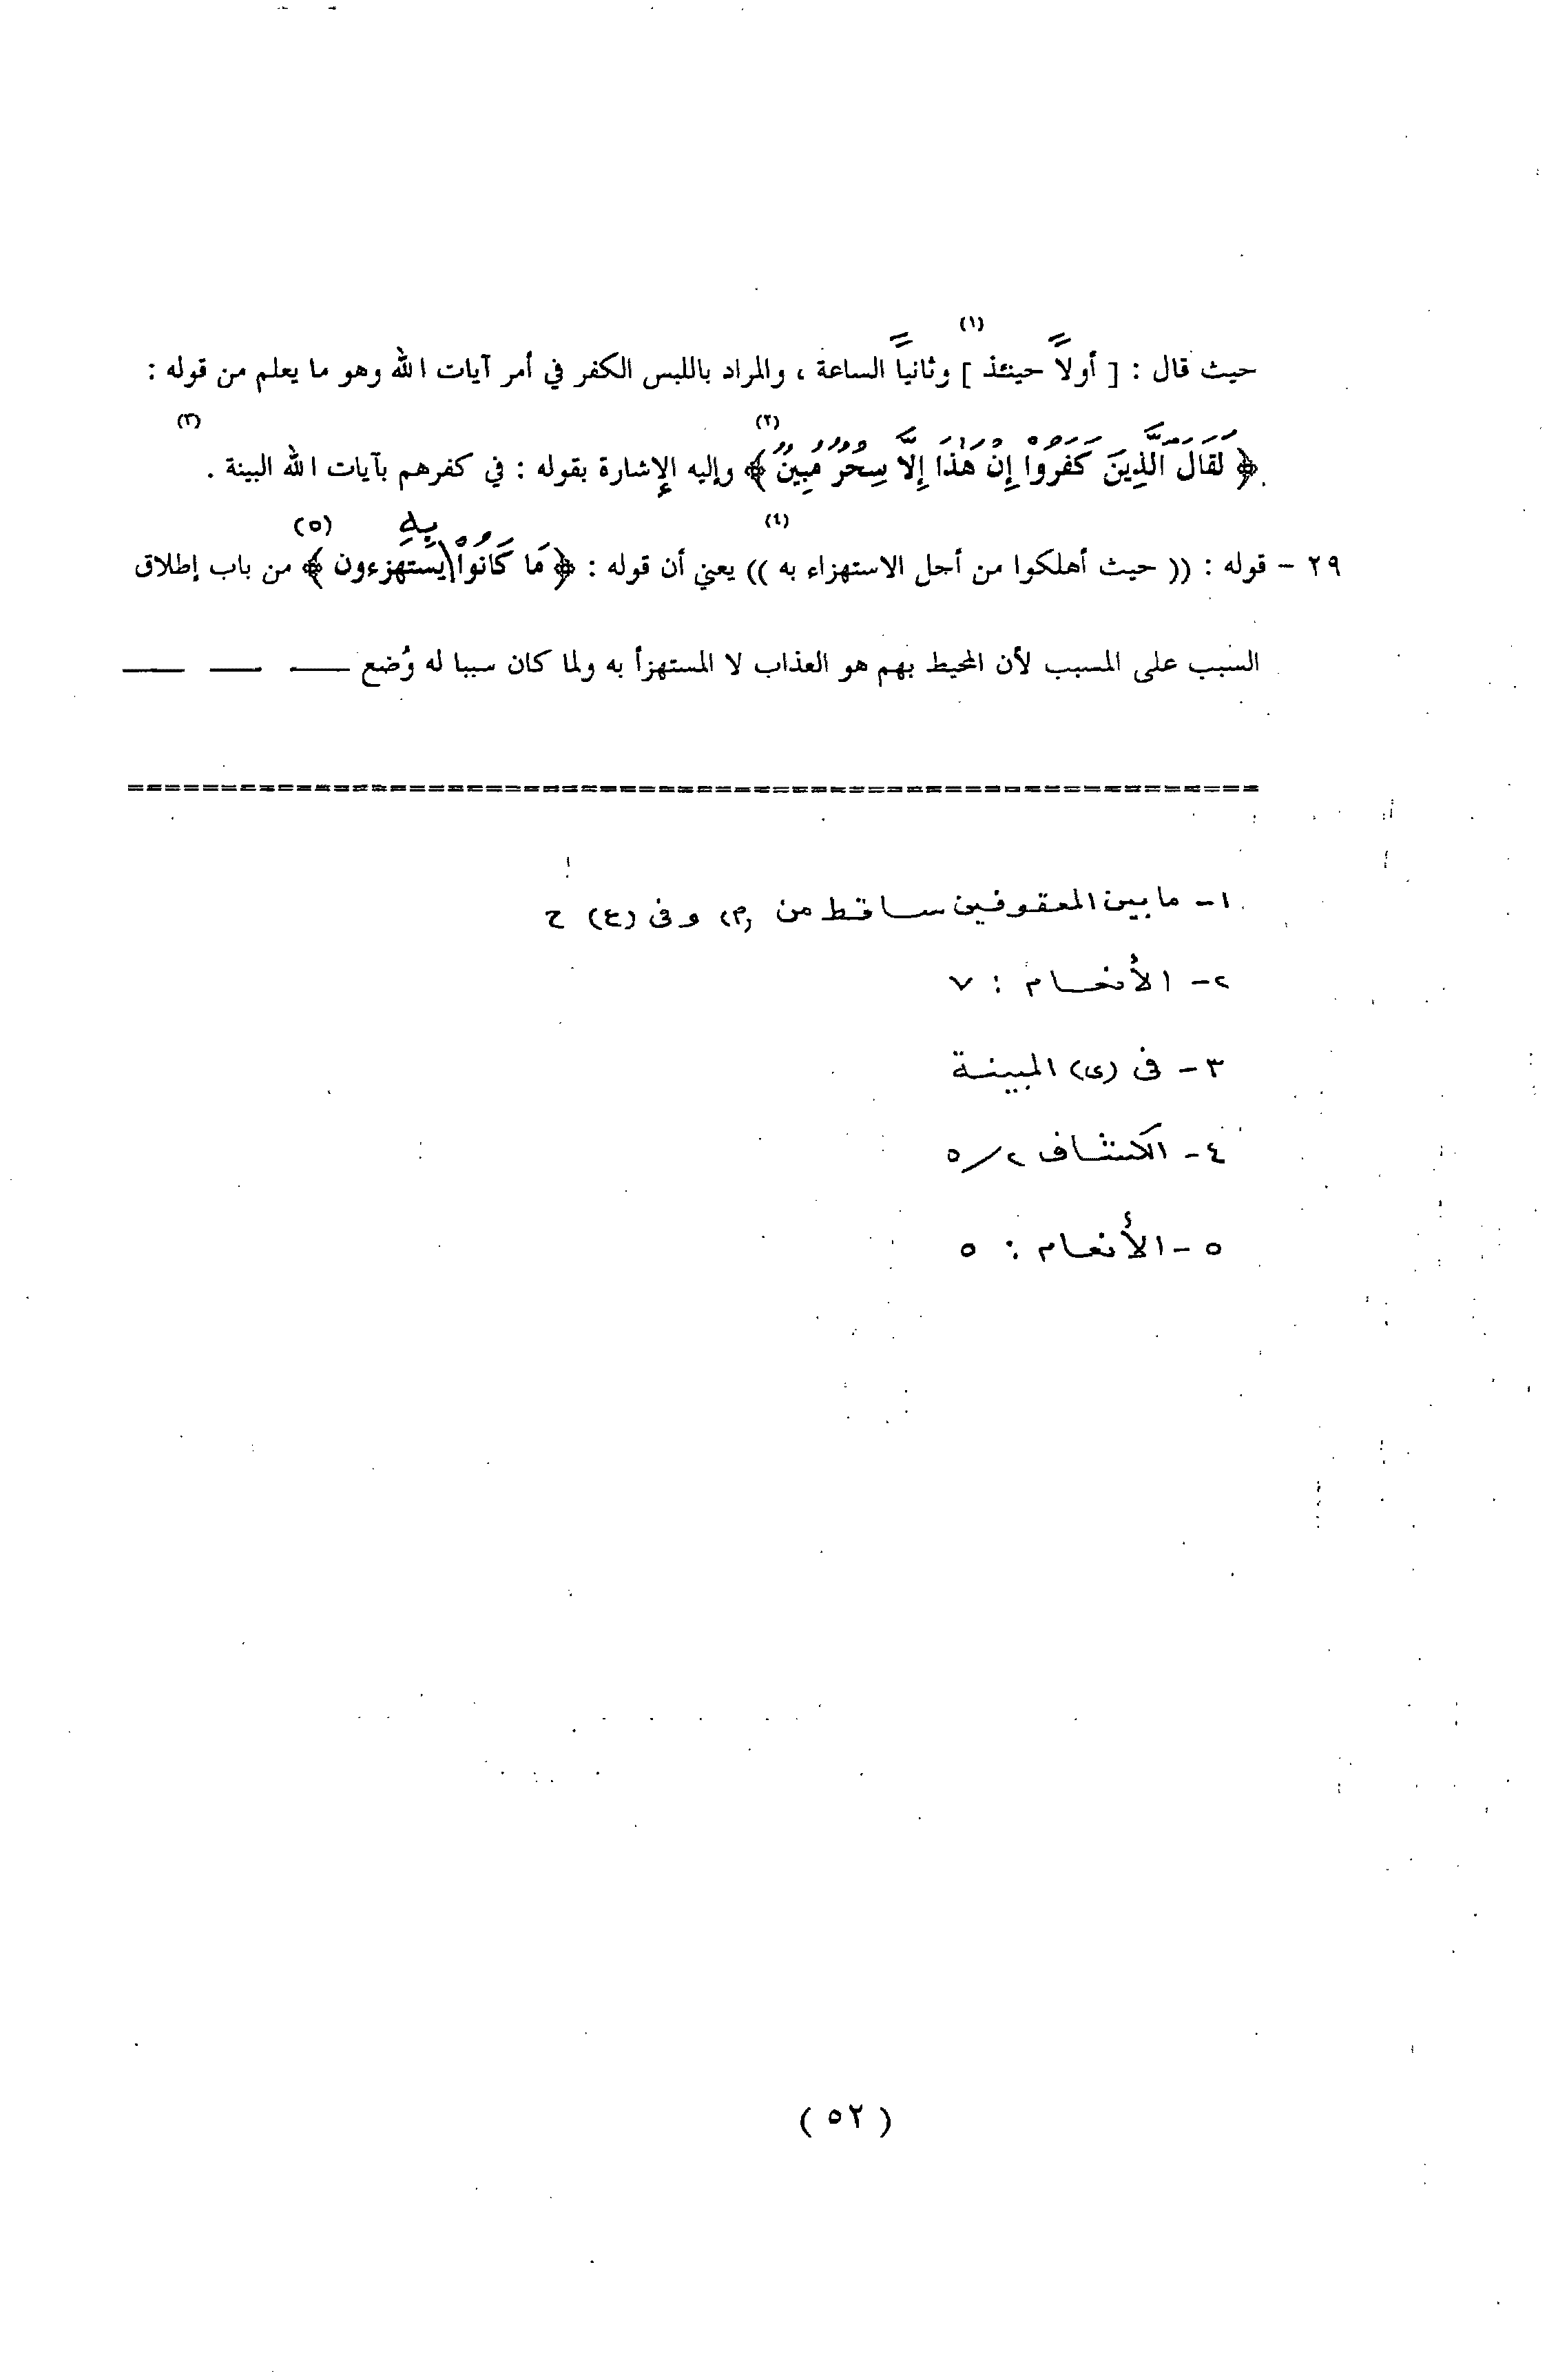 حيث قال : [ أولاً حينئذ ] (١) وثانياً الساعة ، والمراد باللبس الكفر في أمر آيات الله وهو ما يعلم من قوله :
﴿ لَقَالَ الَّذِينَ كَفَرُوا إِنْ هَٰذَا إِلَّا سِحْرٌ مُّبِينٌ ﴾ (٢) وإليه الإشارة بقوله : في كفرهم بآيات الله البينة (٣) .
٢٩ - قوله : (( حيث أهلكوا من أجل الاستهزاء به )) (٤) يعني أن قوله : ﴿ مَا كَانُوْا بِهِ يَستَهزءون ﴾ (٥) من باب إطلاق
السبب على المسبب لأن المحيط بهم هو العذاب لا المستهزأ به ولما كان سببا له وُضع
١- ما بين المعقوفين ساقط من (م) وفى (ع) ح
٢- الأنعام : ٧
٣- فى (ى) المبينة
٤- الكشاف ٢/٥
٥- الأنعام : ٥
( ٥٢ )